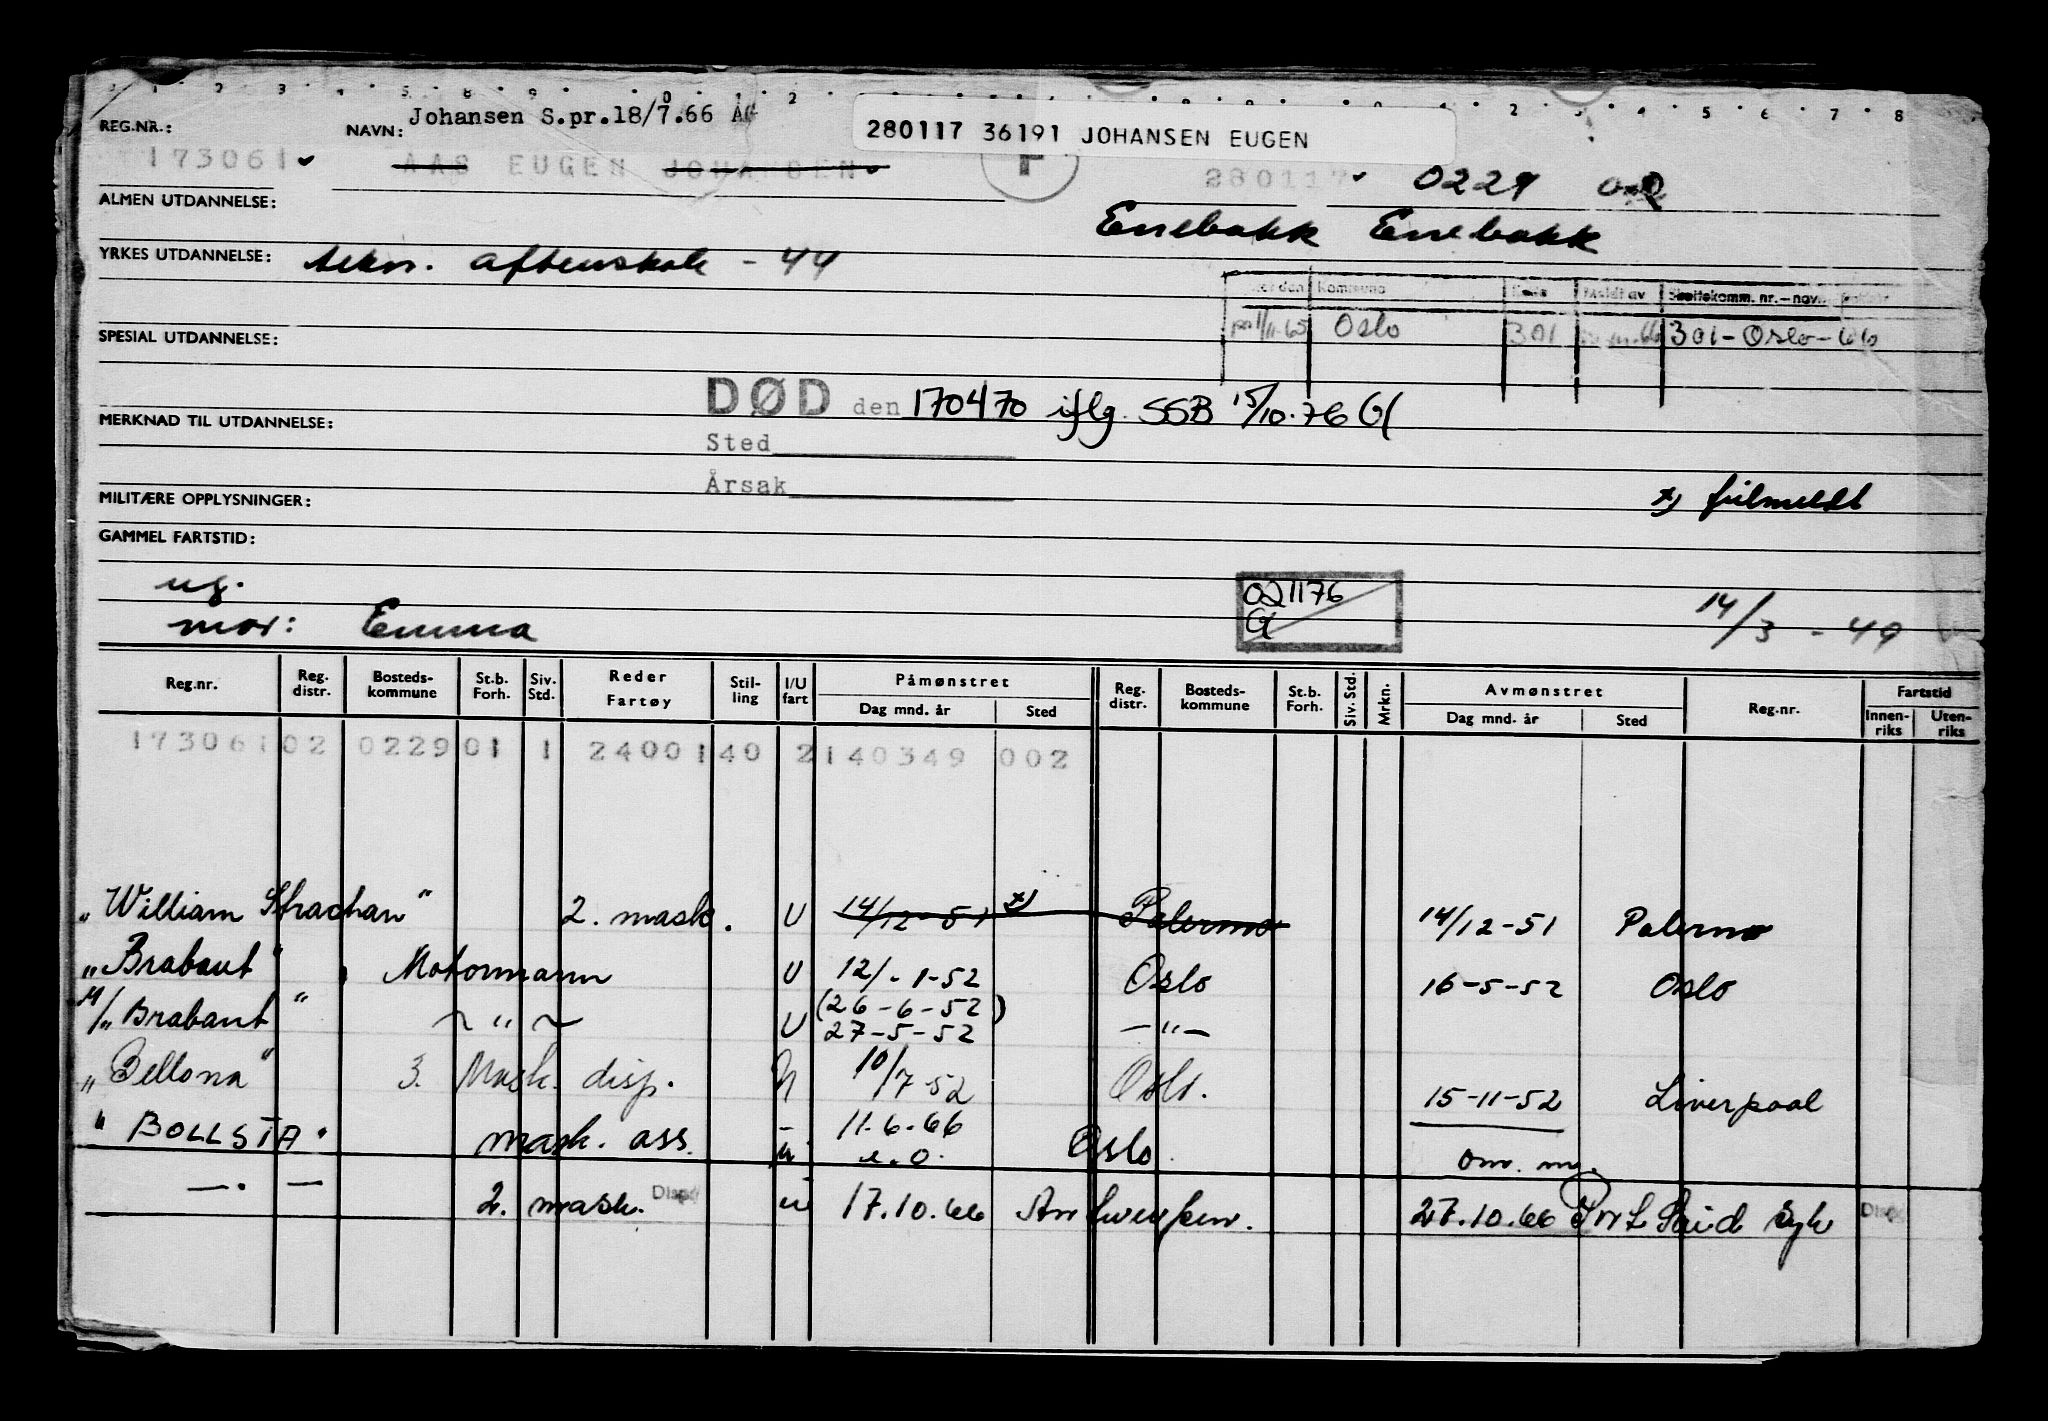 REG.NR.: NAVN: Johansen S.pr.18/7.66 ÅG 280117 36191 JOHANSEN EUGEN
173061 AAS EUGEN JOHANSEN 280117 0229
ALMEN UTDANNELSE:
Enebakk Enebakk
YRKES UTDANNELSE: tekn. aftenskole - 44
Kommune Meldt av Skattekomm. nr. - navn
pr 1/11-65 Oslo 301 301 - Oslo - 66
SPESIAL UTDANNELSE:
DØD den 170470 iflg. SSB 15/10.76 G
MERKNAD TIL UTDANNELSE:
Sted
Årsak
MILITÆRE OPPLYSNINGER: x) feilmeldt
GAMMEL FARTSTID:
ug. 021176
G
mor: Emma 14/3 - 49
Reg.nr. Reg. distr. Bosteds-kommune St.b. Forh. Siv. Std. Reder Fartøy Stil-ling I/U fart Påmønstret Dag mnd. år Sted Reg. distr. Bosteds-kommune St.b. Forh. Siv. Std. Mrkn. Avmønstret Dag mnd. år Sted Reg.nr. Fartstid Innen-riks Uten-riks
173061 02 0229 01 1 24001 40 2 140349 002
"William Strachan" 2. mask. U 14/12-51 x) Palermo 14/12-51 Palermo
"Brabant" Motormann U 12/-1-52 Oslo 16-5-52 Oslo
(26-6-52)
M/"Brabant" ~ " ~ U 27-5-52 — " —
"Bellona" 3. Mask. disp. U 10/7-52 Oslo. 15-11-52 Liverpool
"BOLLSTA" mask. ass. u 11.6.66 Oslo. om. m.
— . — 2. mask. Disp u 17.10.66 Antwerpen. 27.10.66 Port Said syk Disp